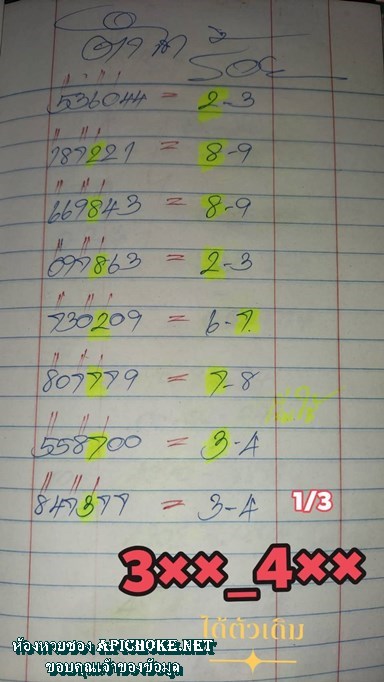 536044 = 2-3
787221 = 8-9
669843 = 8-9
097863 = 2-3
730209 = 6-7
807779 = 7-8
558700 = 3-4
847377 = 3-4
1/3
3××_4××
ได้ตัวเต็ม
ห้องหวยซอง APICHOKE.NET
ขอบคุณเจ้าของข้อมูล